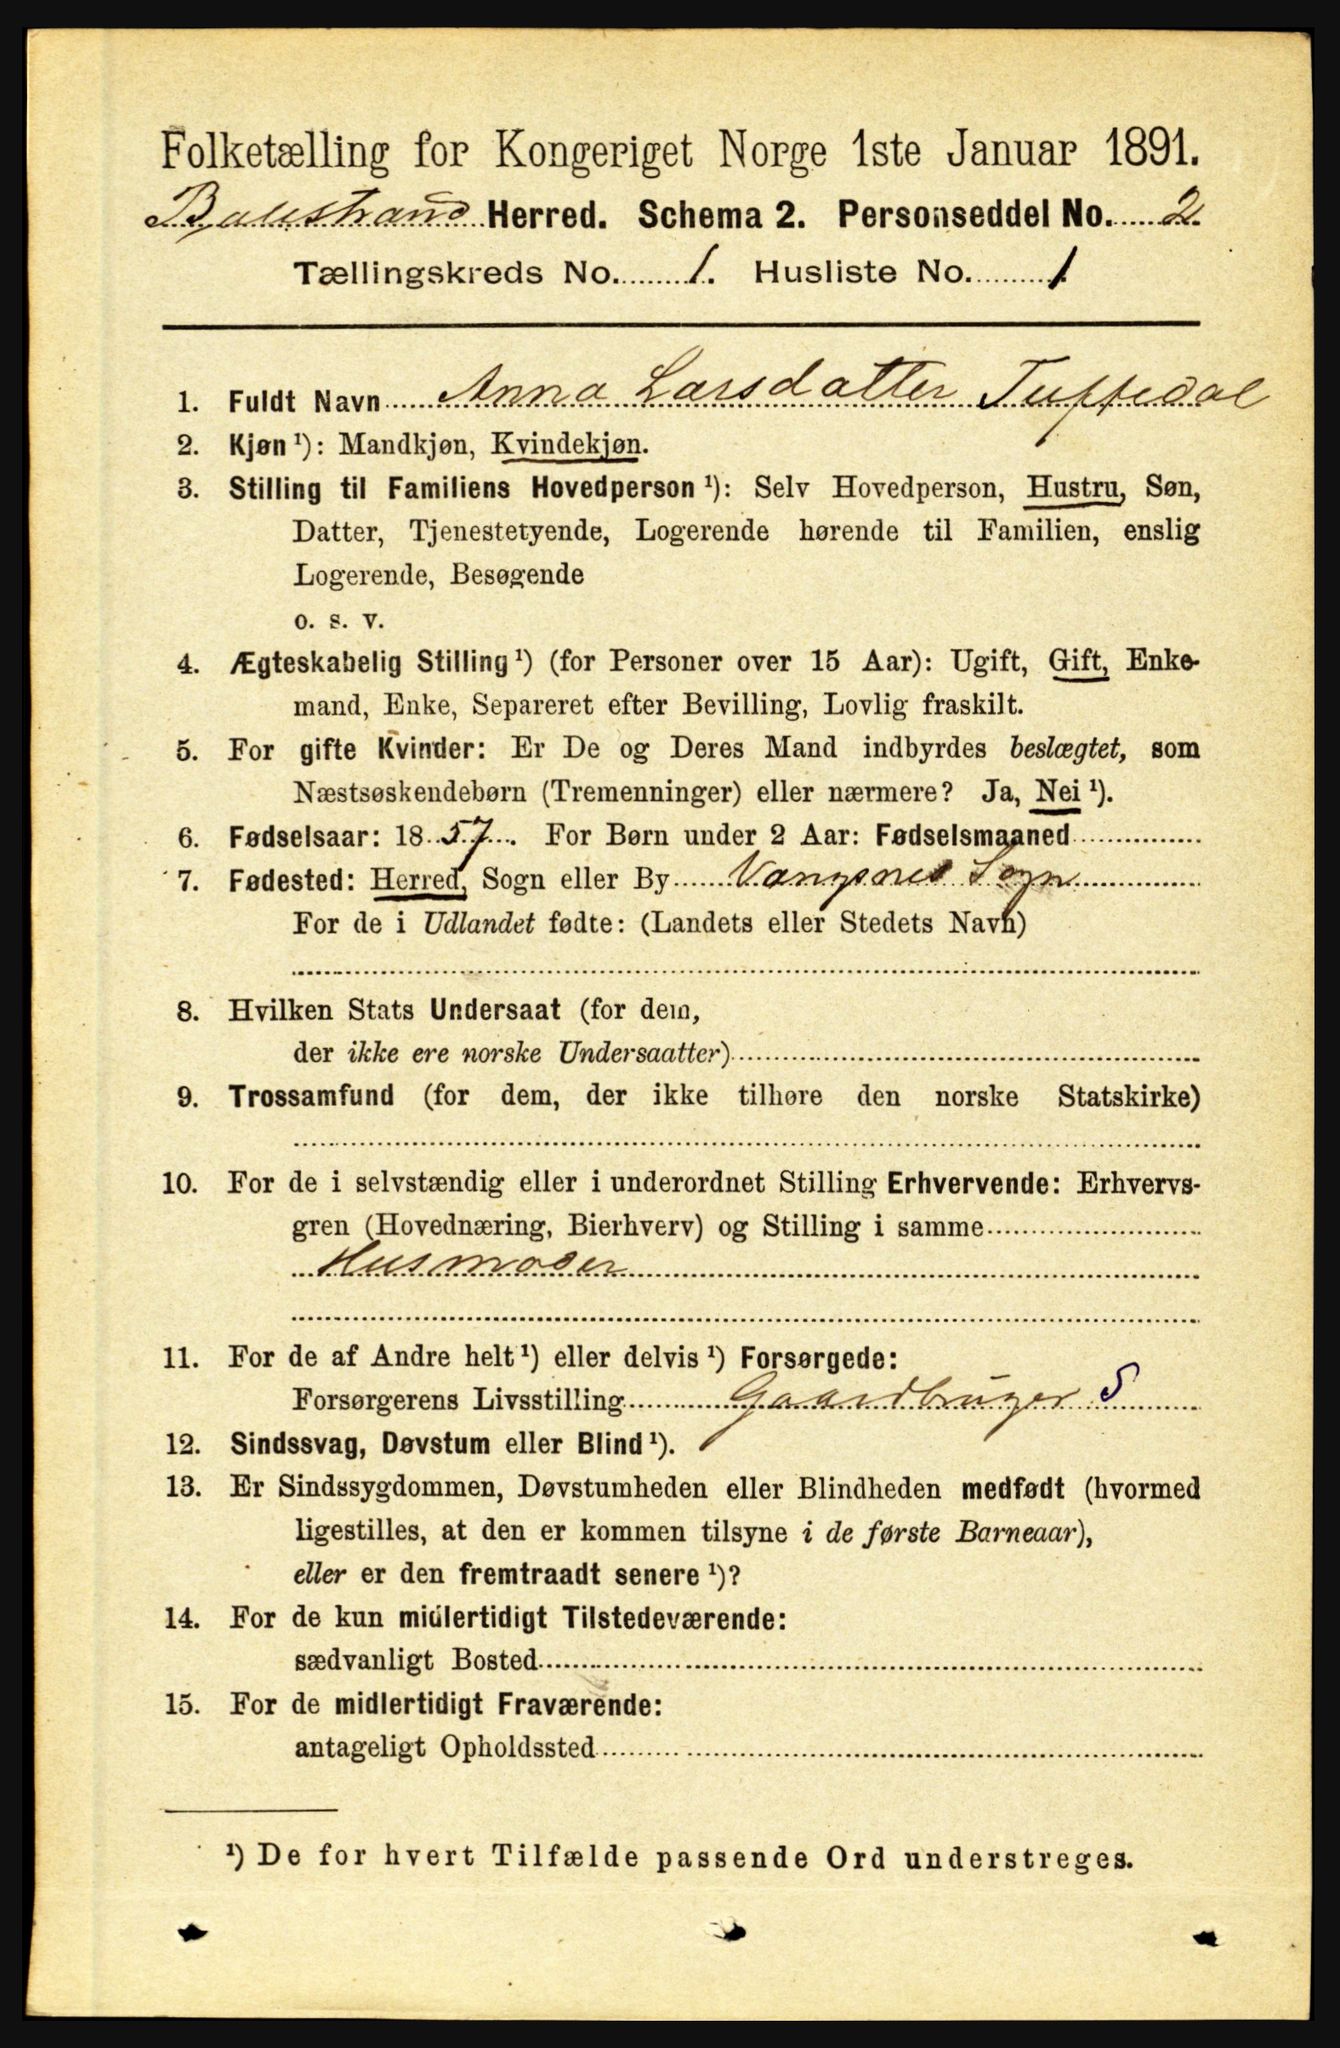 Folketælling for Kongeriget Norge 1ste Januar 1891.
Balestrand Herred. Schema 2. Personseddel No. 2
Tællingskreds No. 1. Husliste No. 1
1. Fuldt Navn Anna Larsdatter Tuftedal
2. Kjøn ¹): Mandkjøn, Kvindekjøn.
3. Stilling til Familiens Hovedperson ¹): Selv Hovedperson, Hustru, Søn,
Datter, Tjenestetyende, Logerende hørende til Familien, enslig
Logerende, Besøgende
o. s. v.
4. Ægteskabelig Stilling ¹) (for Personer over 15 Aar): Ugift, Gift, Enke-
mand, Enke, Separeret efter Bevilling, Lovlig fraskilt.
5. For gifte Kvinder: Er De og Deres Mand indbyrdes beslægtet, som
Næstsøskendebørn (Tremenninger) eller nærmere? Ja, Nei ¹).
6. Fødselsaar: 1857. For Børn under 2 Aar: Fødselsmaaned
7. Fødested: Herred, Sogn eller By Vangsnes Sogn
For de i Udlandet fødte: (Landets eller Stedets Navn)
8. Hvilken Stats Undersaat (for dem,
der ikke ere norske Undersaatter)
9. Trossamfund (for dem, der ikke tilhøre den norske Statskirke)
10. For de i selvstændig eller i underordnet Stilling Erhvervende: Erhvervs-
gren (Hovednæring, Bierhverv) og Stilling i samme
Husmoder
11. For de af Andre helt ¹) eller delvis ¹) Forsørgede:
Forsørgerens Livsstilling Gaardbruger S
12. Sindssvag, Døvstum eller Blind ¹).
13. Er Sindssygdommen, Døvstumheden eller Blindheden medfødt (hvormed
ligestilles, at den er kommen tilsyne i de første Barneaar),
eller er den fremtraadt senere ¹)?
14. For de kun midlertidigt Tilstedeværende:
sædvanligt Bosted
15. For de midlertidigt Fraværende:
antageligt Opholdssted
¹) De for hvert Tilfælde passende Ord understreges.